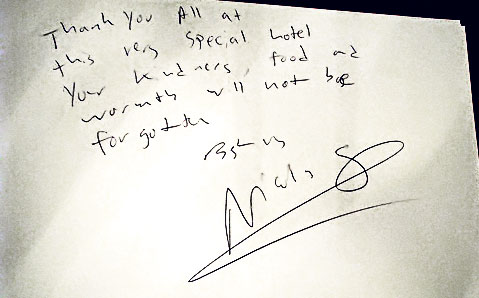 Thank you All at
this very special hotel
Your kindness, food and
warmth will not be
forgotten